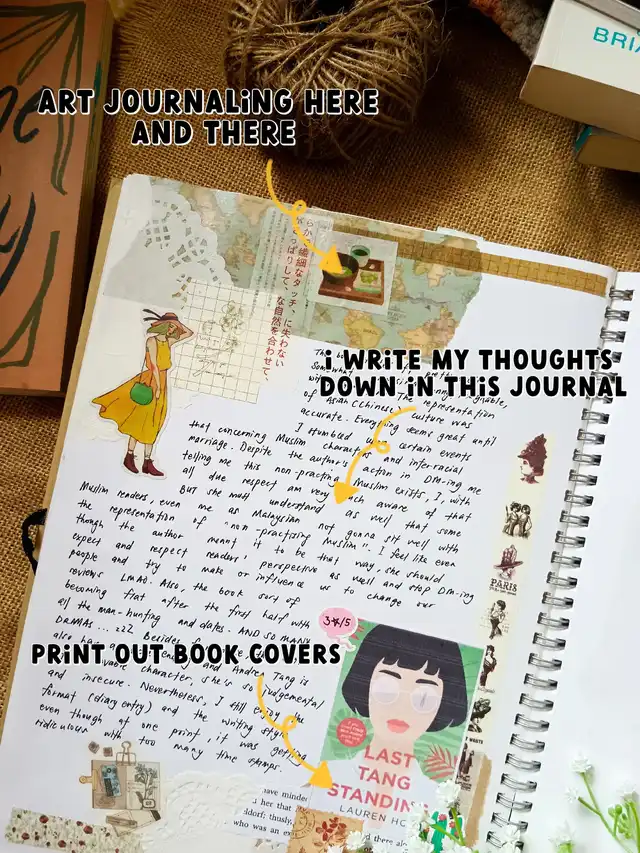 BRIA
ART JOURNALiNG HERE
AND THERE
らか
繊細なタッチ、に失わない
さっぱりして、な自然を合わせて、
i WRiTE MY THOUGHTS
DOWN iN THiS JOURNAL
of Asian (Chinese) culture was
accurate. Everything seems great until
I stumbled certain events
that concerning Muslim characters and inter-racial
marriage. Despite the author's action in DM-ing me
telling me this non-practing Muslim exists, I, with
all due respect am very much aware of that
But she must understand as well that some
Muslim renders, even me as Malaysian not gonna sit well with
the representation of "non-practising Muslim". I feel like even
though the author meant it to be that way, she should
expect and respect readers' perspective as well and stop DM-ing
people and try to make or influence us to change our
reviews LMAO. Also, the book sort of
becoming flat after the first half with
all the man-hunting and dates. AND SO MANY
DRAMAS... zzZ Besides
also
PRiNT OUT BOOK COVERS
and Andrea Tang is
character, she's so judgemental
and insecure. Nevertheless, I still enjoy the
format (diary entry) and the writing style
even though at one point, it was getting
ridiculous with too many time stamps.
3★/5
PARIS
LAST
TANG
STANDING
LAUREN HO
have minded
her that
ddorf; thusly,
who was an